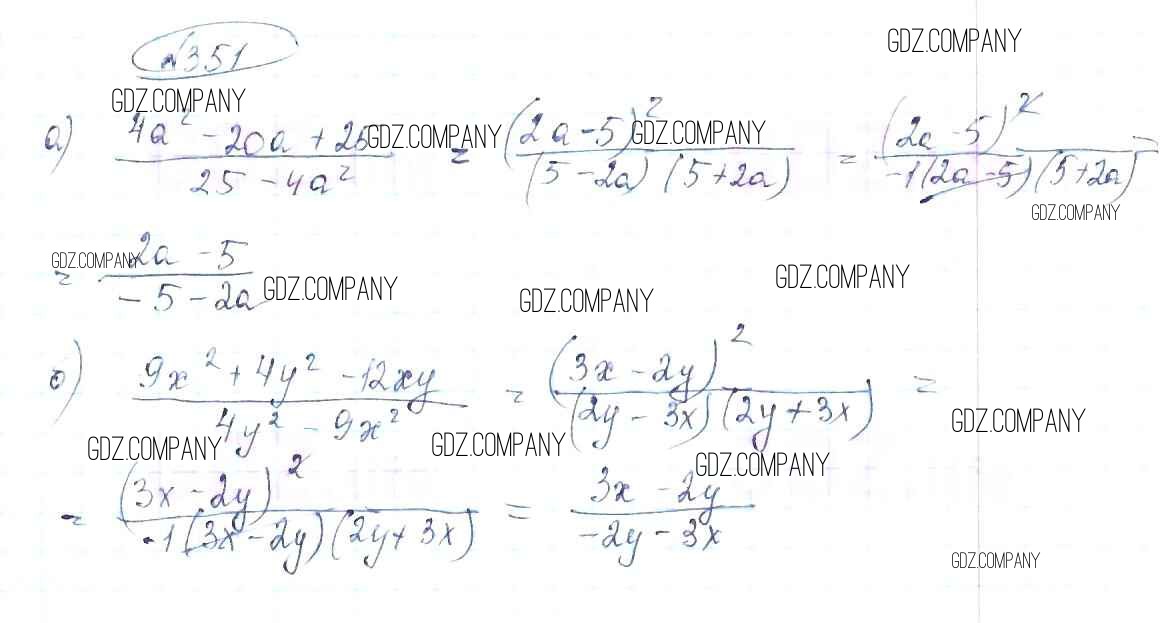 №351
GDZ.COMPANY
GDZ.COMPANY
а) (4a² - 20a + 25)/(25 - 4a²) = (2a - 5)²/((5 - 2a)(5 + 2a)) = (2a - 5)²/(-1(2a - 5)(5 + 2a)) =
GDZ.COMPANY GDZ.COMPANY
GDZ.COMPANY
= (2a - 5)/(-5 - 2a)
GDZ.COMPANY GDZ.COMPANY GDZ.COMPANY GDZ.COMPANY
б) (9x² + 4y² - 12xy)/(4y² - 9x²) = (3x - 2y)²/((2y - 3x)(2y + 3x)) =
GDZ.COMPANY GDZ.COMPANY GDZ.COMPANY
GDZ.COMPANY
= (3x - 2y)²/(-1(3x - 2y)(2y + 3x)) = (3x - 2y)/(-2y - 3x)
GDZ.COMPANY